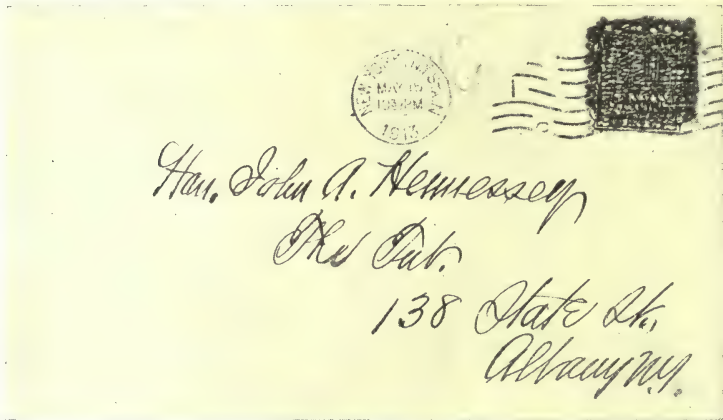 NEW YORK, N.Y. STA. N
MAY 15
PM
1913
Hon. John A. Hennessey
The Tub.
138 State St.
Albany N.Y.